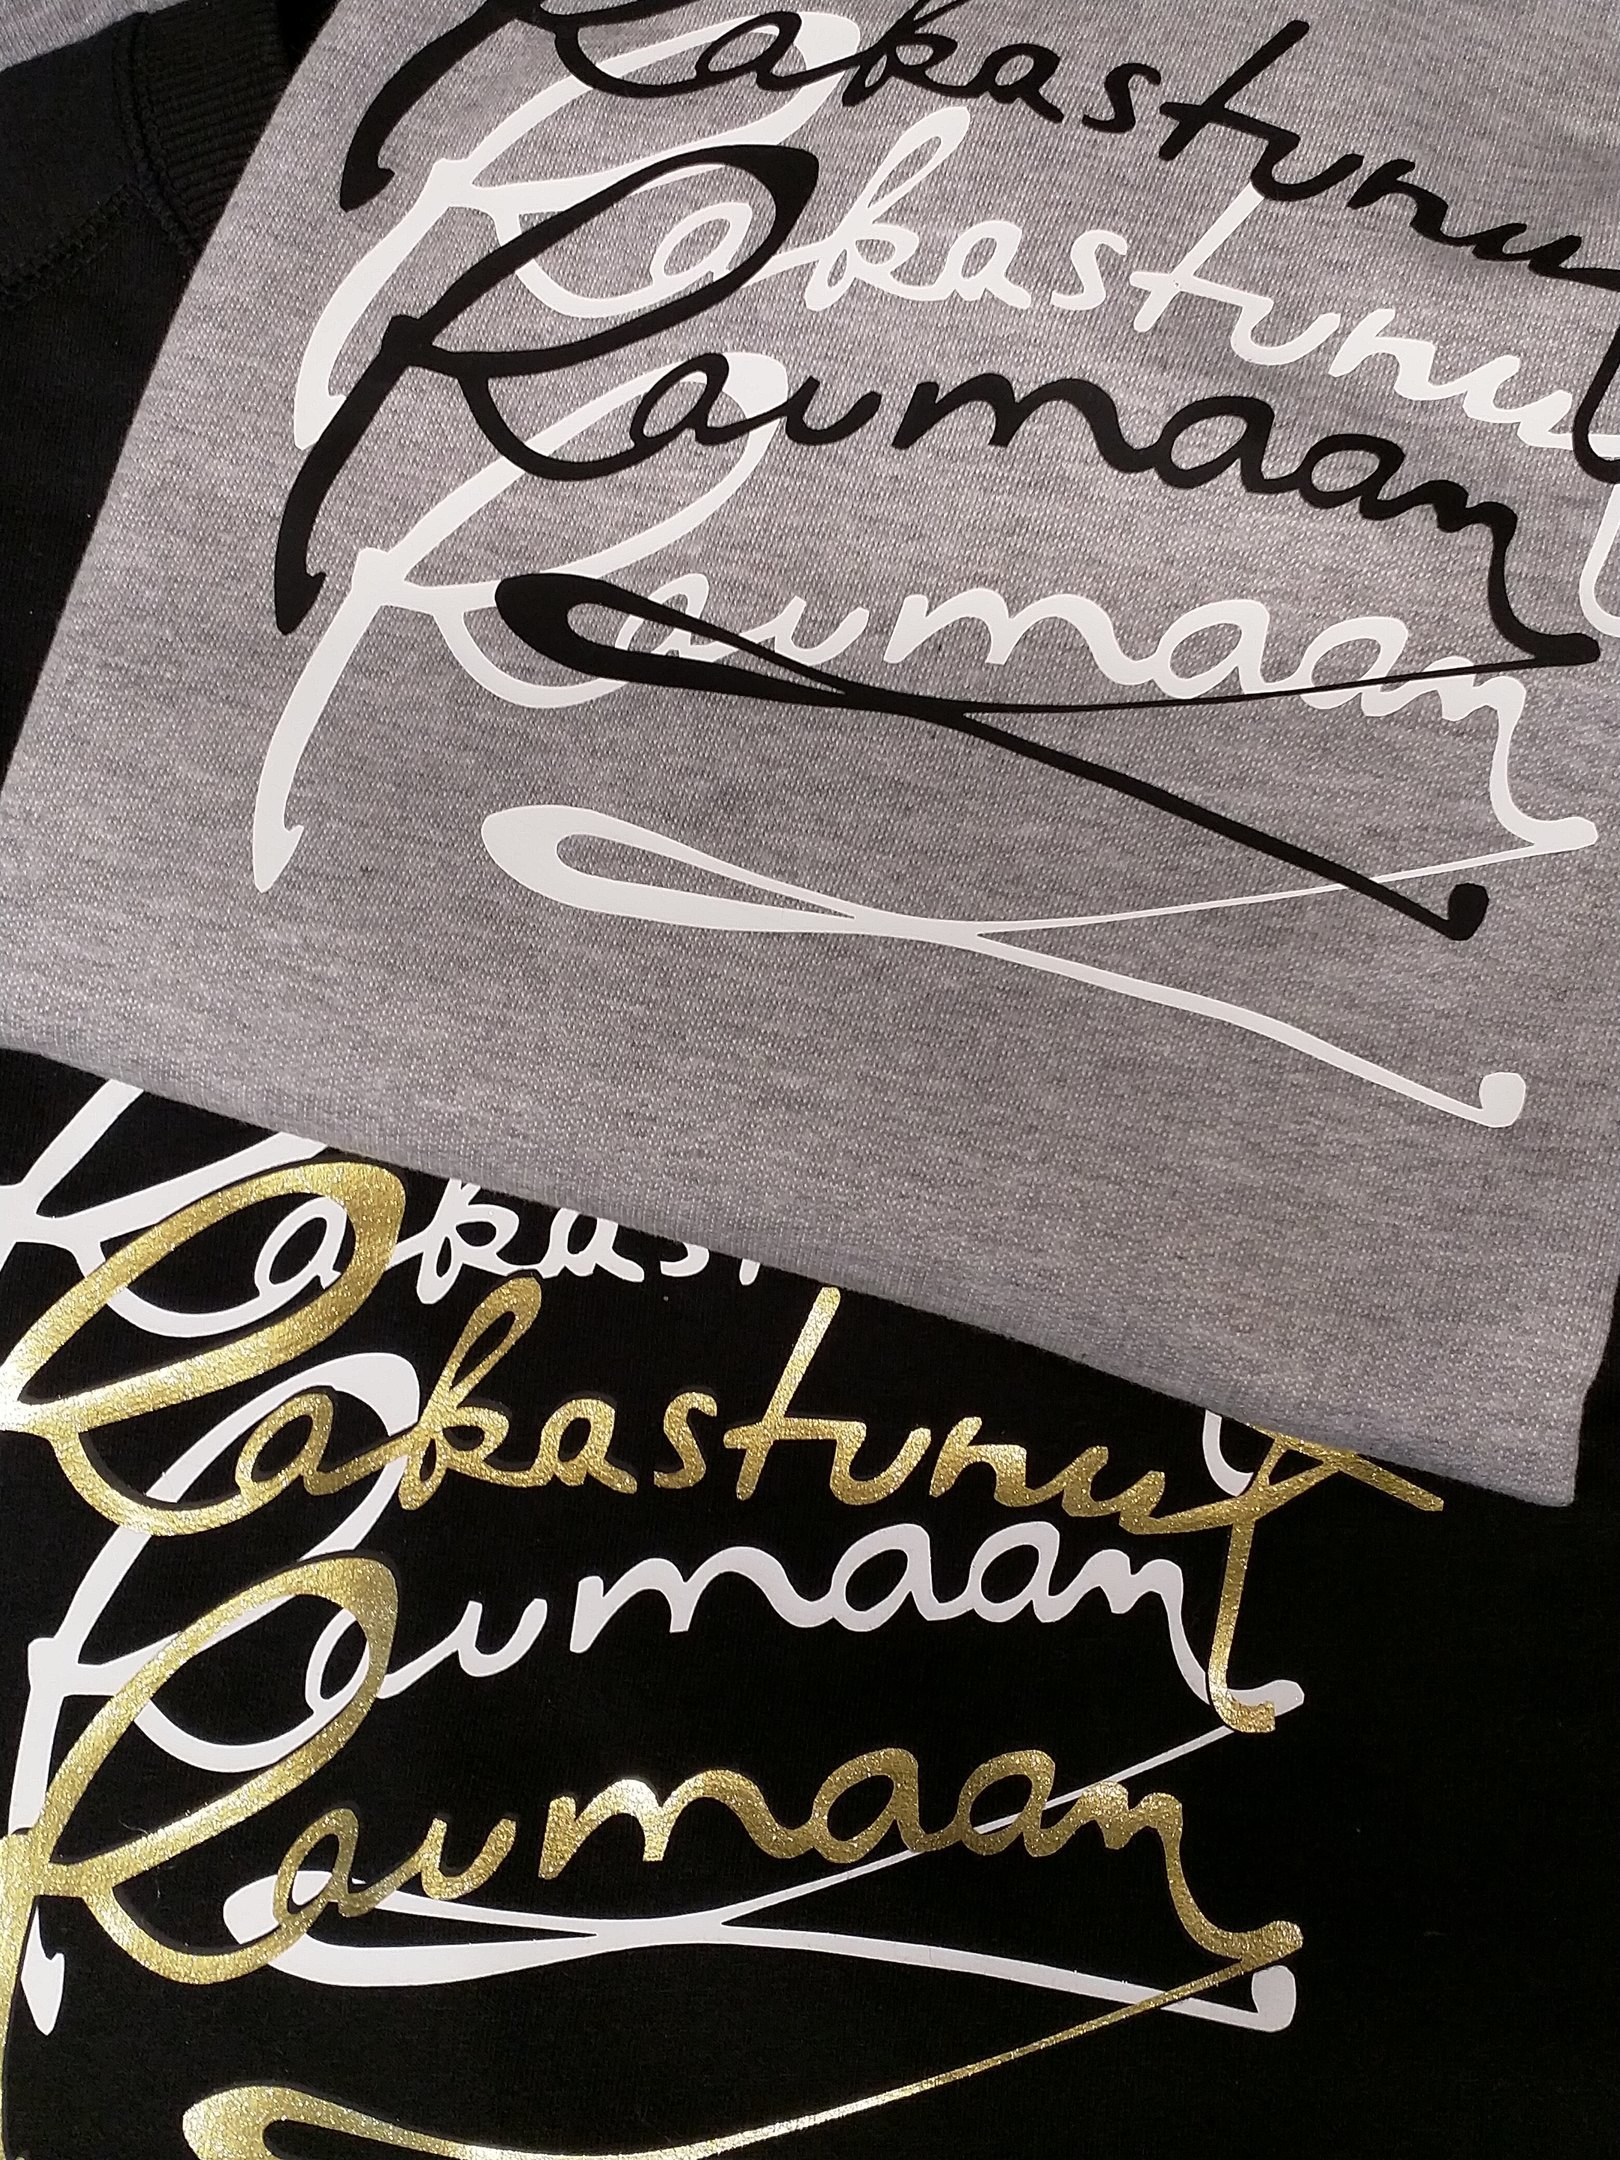 Rakastunu
Rakastunu
Raumaan
Raumaan
Rakast
Rakastunut
Raumaan
Raumaan